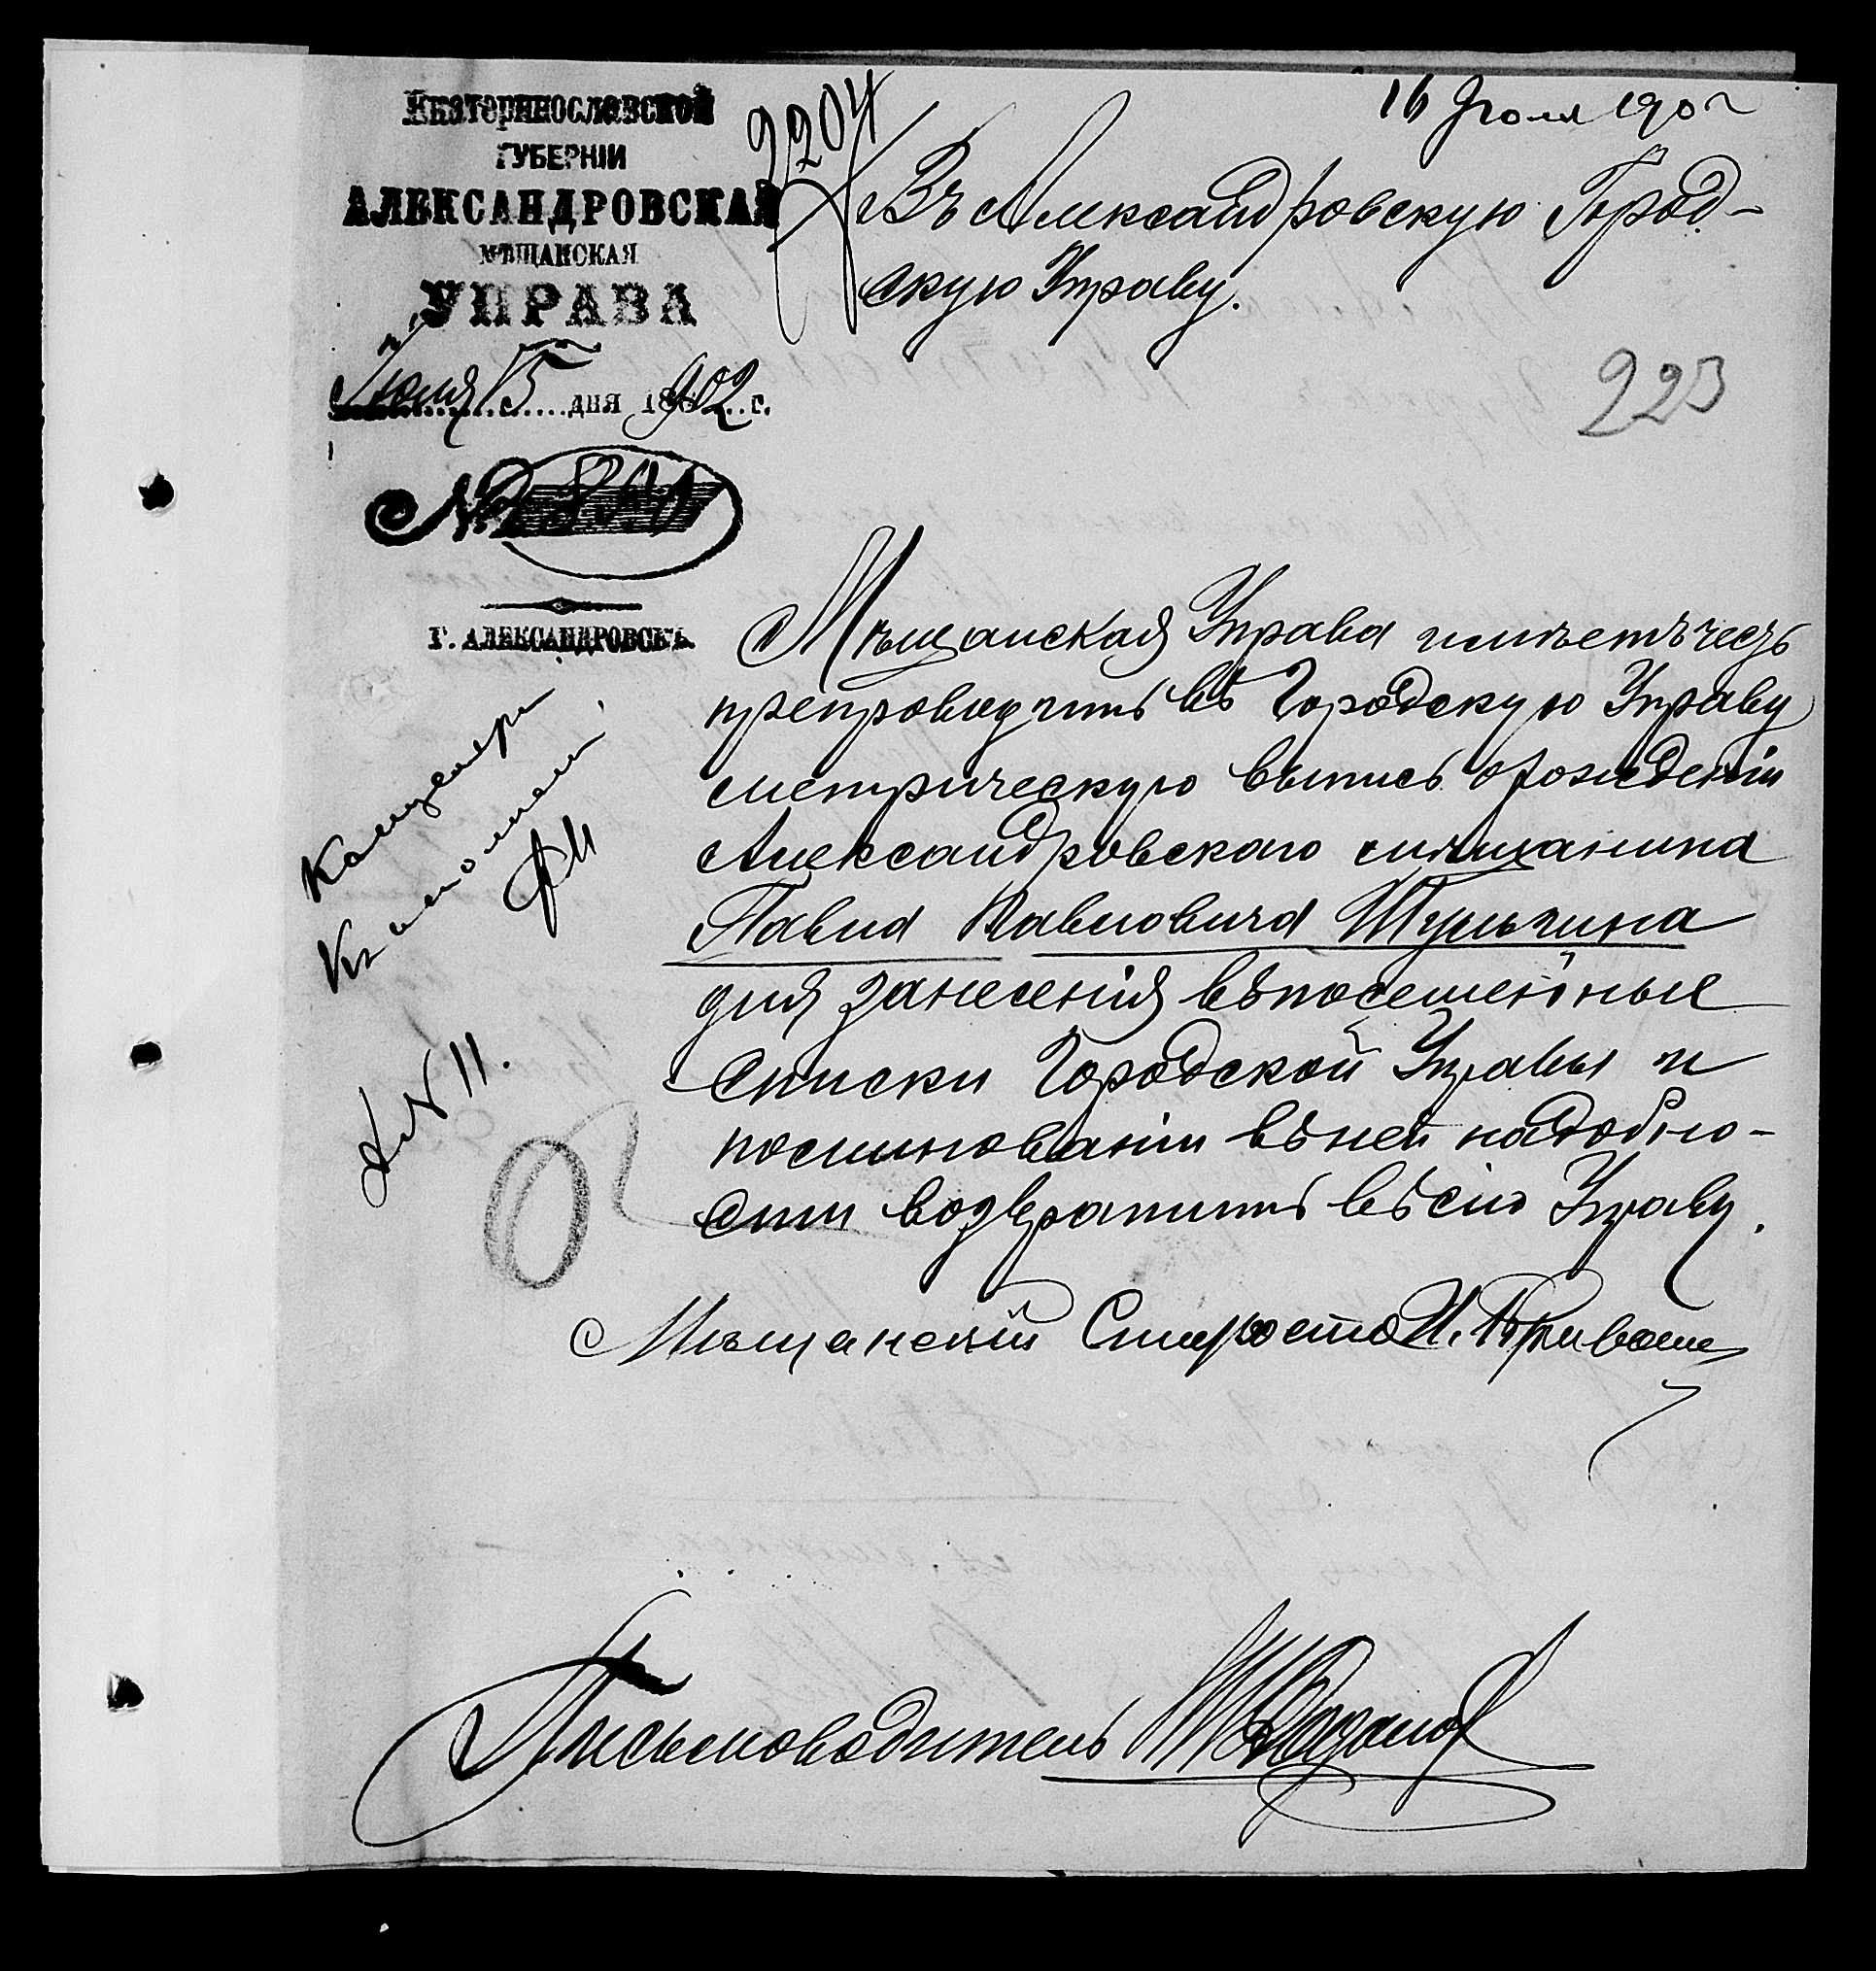 Екатеринославской
ГУБЕРНІИ
АЛЕКСАНДРОВСКАЯ
МѢЩАНСКАЯ
УПРАВА
Іюля 15 дня 1902 г.
№
Г. АЛЕКСАНДРОВСКЪ
2204
16 Іюля 1902
Въ Александровскую Город-
скую Управу.
223
Мѣщанская Управа имѣетъ честь
препроводить въ Городскую Управу
метрическую выпись о рожденіи
Александровскаго мѣщанина
Павла Павловича Шульгина
для занесенія въ посемейные
списки Городской Управы и
по минованіи въ ней надобно-
сти возвратить въ сію Управу.
Мѣщанскій Староста И.
Письмоводитель
Къ исполнен.
№ 11.